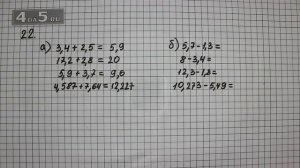 22.
а) 3,4 + 2,5 = 5,9
17,2 + 2,8 = 20
5,9 + 3,7 = 9,6
4,587 + 7,64 = 12,227
б) 5,7 - 1,3 =
8 - 3,4 =
12,3 - 1,8 =
10,273 - 5,49 =